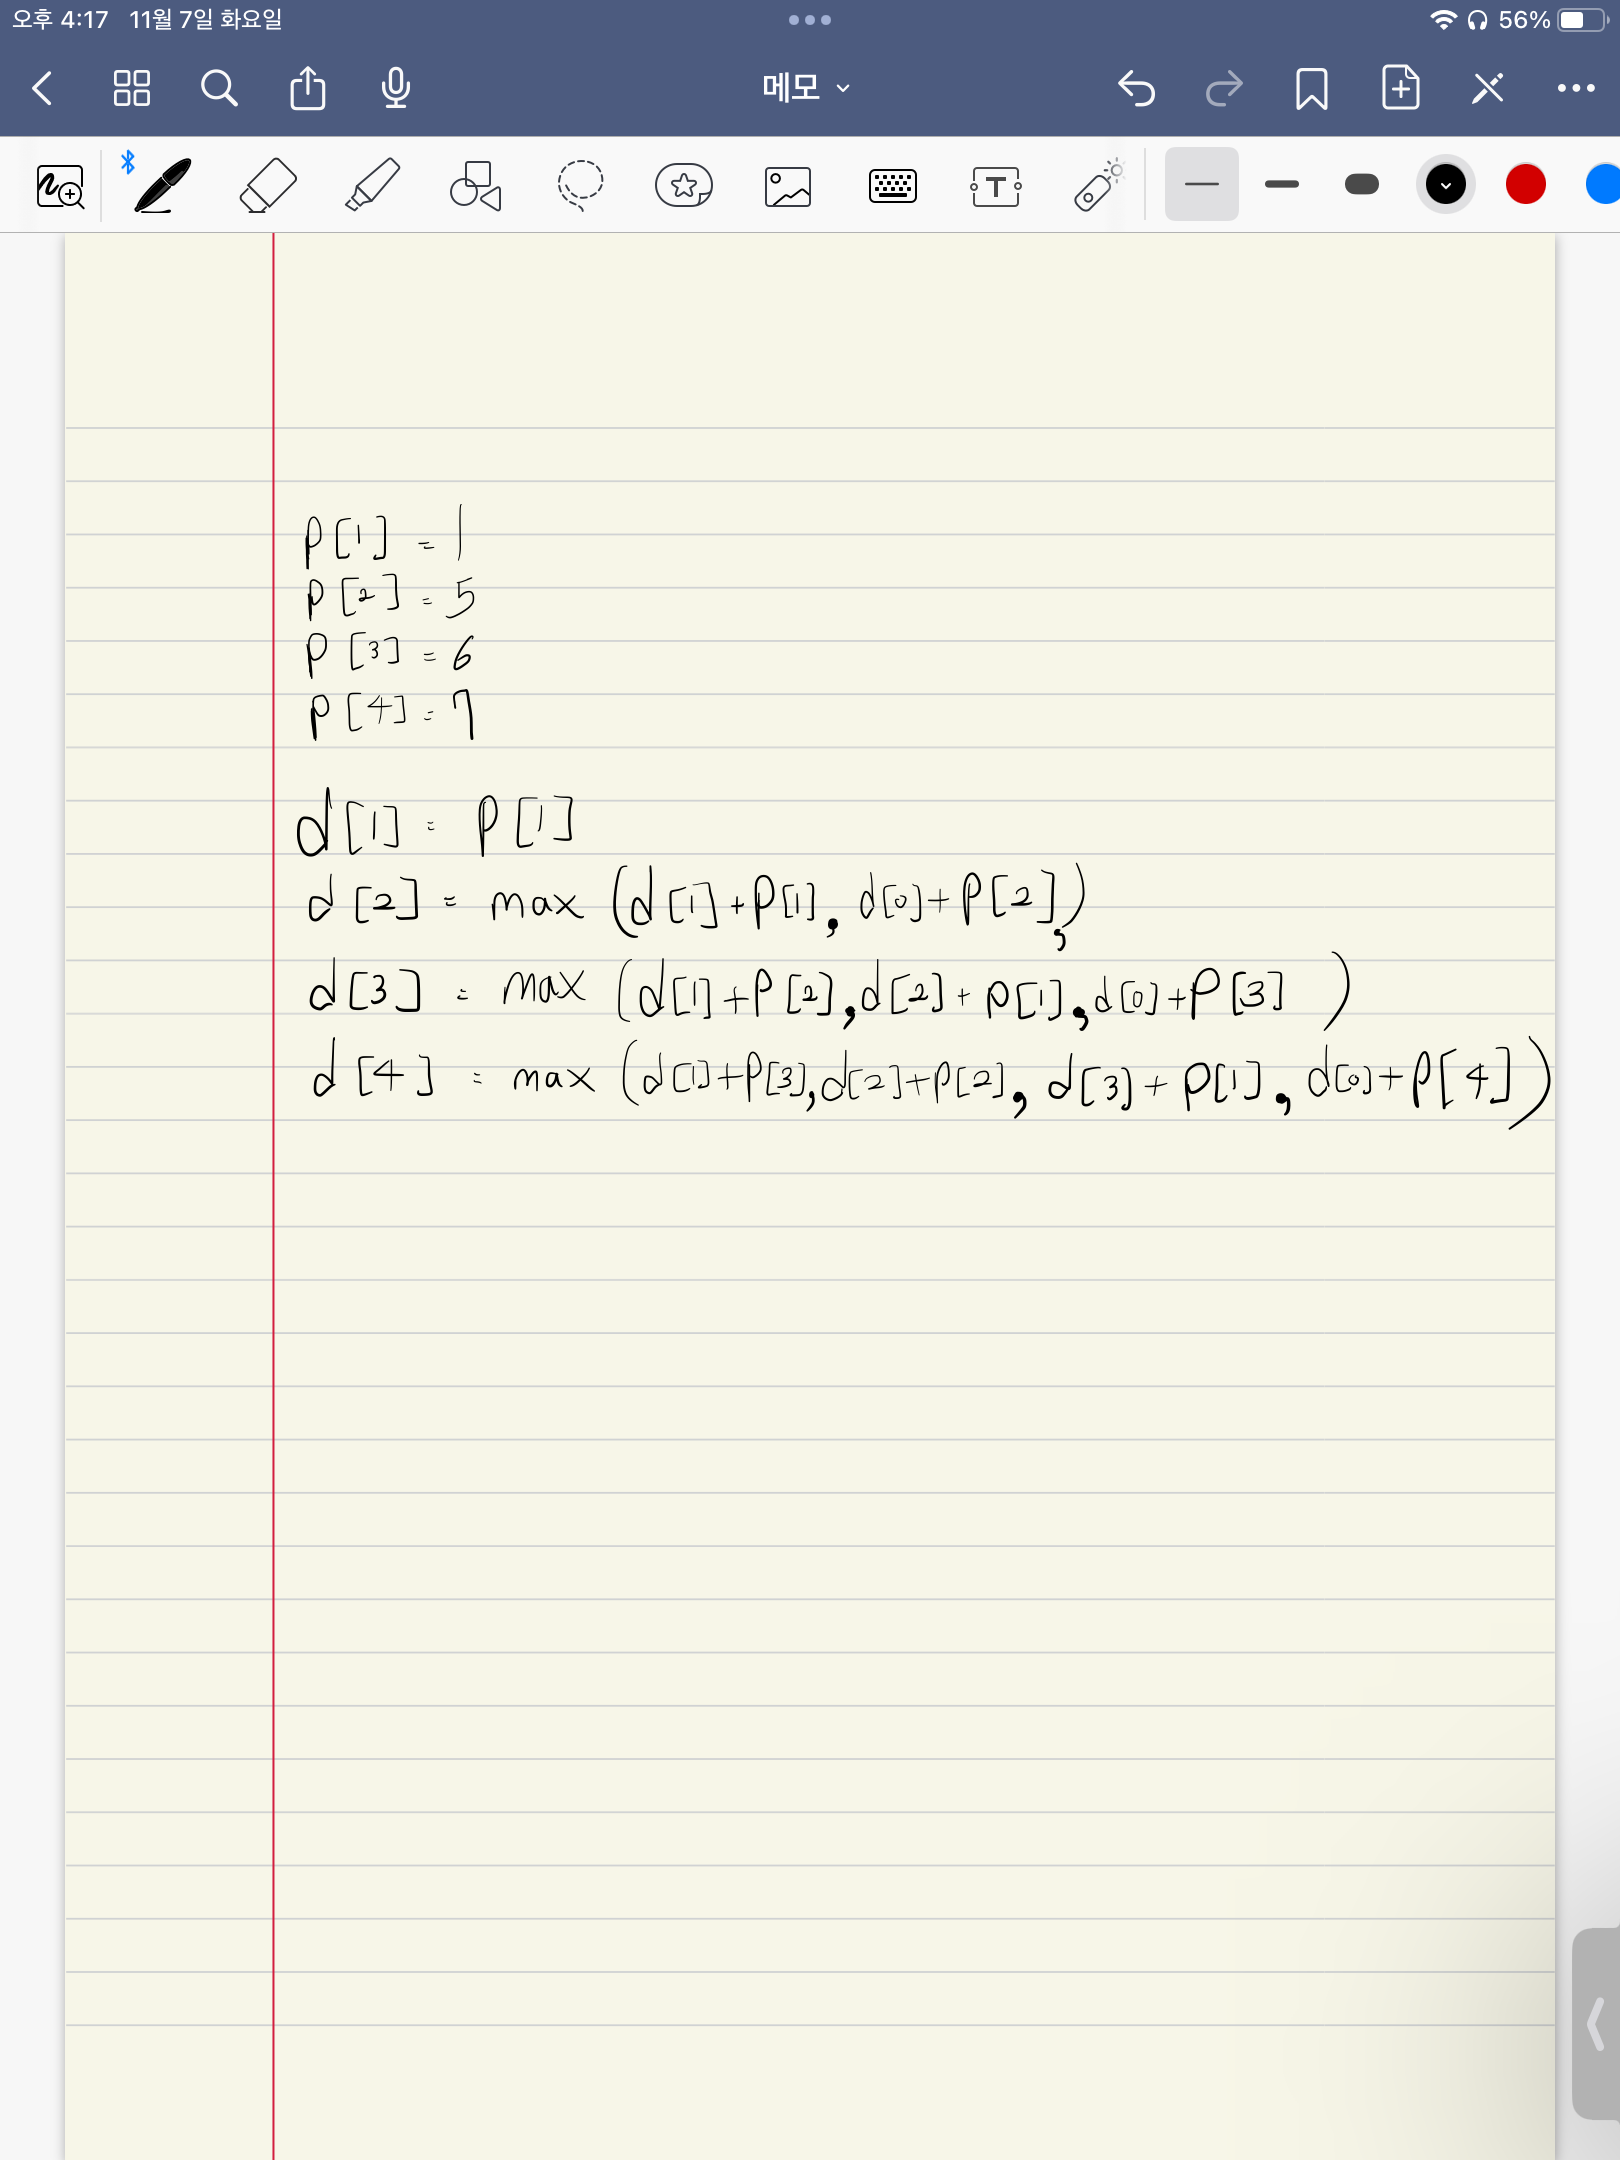 오후 4:17 11월 7일 화요일 56%
메모
T
P[1] = 1
P[2] = 5
P[3] = 6
P[4] = 7
d[1] = P[1]
d[2] = max (d[1]+P[1], d[0]+P[2],)
d[3] = max (d[1]+P[2], d[2]+P[1], d[0]+P[3] )
d[4] = max (d[1]+P[3], d[2]+P[2], d[3]+P[1], d[0]+P[4])